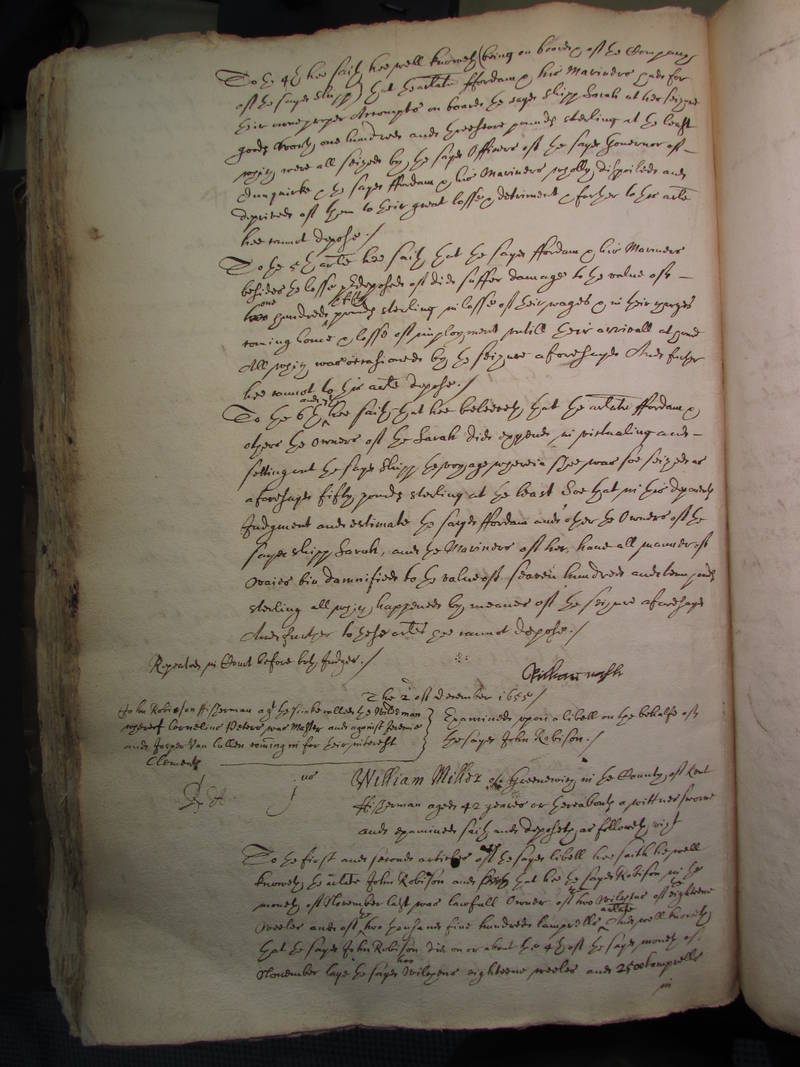 To the 4th hee saith hee well knoweth (being on board, & of the Company
of the sayd shipp) that the arlate ffordam & his Mariners had for
their owne proper Accompts on board the sayd shipp Sarah at her seizure
goods worth one hundred and threescore pounds sterling at the least
which were all seized by the sayd Officers of the sayd Governor of -
Dunquirke & the sayd ffordam & his Mariners wholly dispoiled and
deprived of them to their great losse & detriment & further to this arle
hee cannot depose ./
To the 5th arle hee saith that the sayd ffordam & his Mariners
besides the losse predeposed of did suffer damage to the value of -
one
hundred pounds sterling in losse of their wages & in their charges
coming home & losse of imployment untill their arrivall at home
All which was occasioned by the seizure aforesayd And further
hee cannot to this arle depose ./
To the 6th hee saith that hee beleeveth that the arlate ffordam &
others the Owners of the Sarah did expend in victualing and -
setting out the sayd shipp the voyage wherein shee was soe seized as
aforesayd fifty pounds sterling at the least Soe that in this deponents
Judgment and estimate the sayd ffordam and other the Owners of the
sayd shipp Sarah, and the Mariners of her, have all manner of
waies bin damnified to the value of seaven hundred and tenn pounds
sterling all which happened by meanes of the seizure aforesayd
And further to these arles hee cannot depose ./
Repeated in Court before both Judges ./
William
The 2 of december 1655 /
John Robinson ffisherman agt the Pinke called the Wildman
whereof Cornelius Peters was Master and against Jeremie
and Jasper Van Cullen coming in for their interest
Clements
Examined upon a libell on the behalfe of
the sayd John Robison ./
jus
William Miller of Greenewich in the County of Kent
ffisherman aged 42 yeares or thereabouts a wittnes sworne
and examined saith and deposeth as followeth vizt
To the first and second articles of the sayd libell hee saith hee well
knoweth the arlate John Robison and that hee the sayd Robison in the
moneth of November last was lawfull Owner of two Wilepens of eighteene
Weeles and of two thousand five hundred lamprells arlate And well knoweth
that the sayd John Robison did on or about the 4th of the sayd moneth of
two
November laye the sayd Wilepens eighteene weeles and 2500 lamprells
in